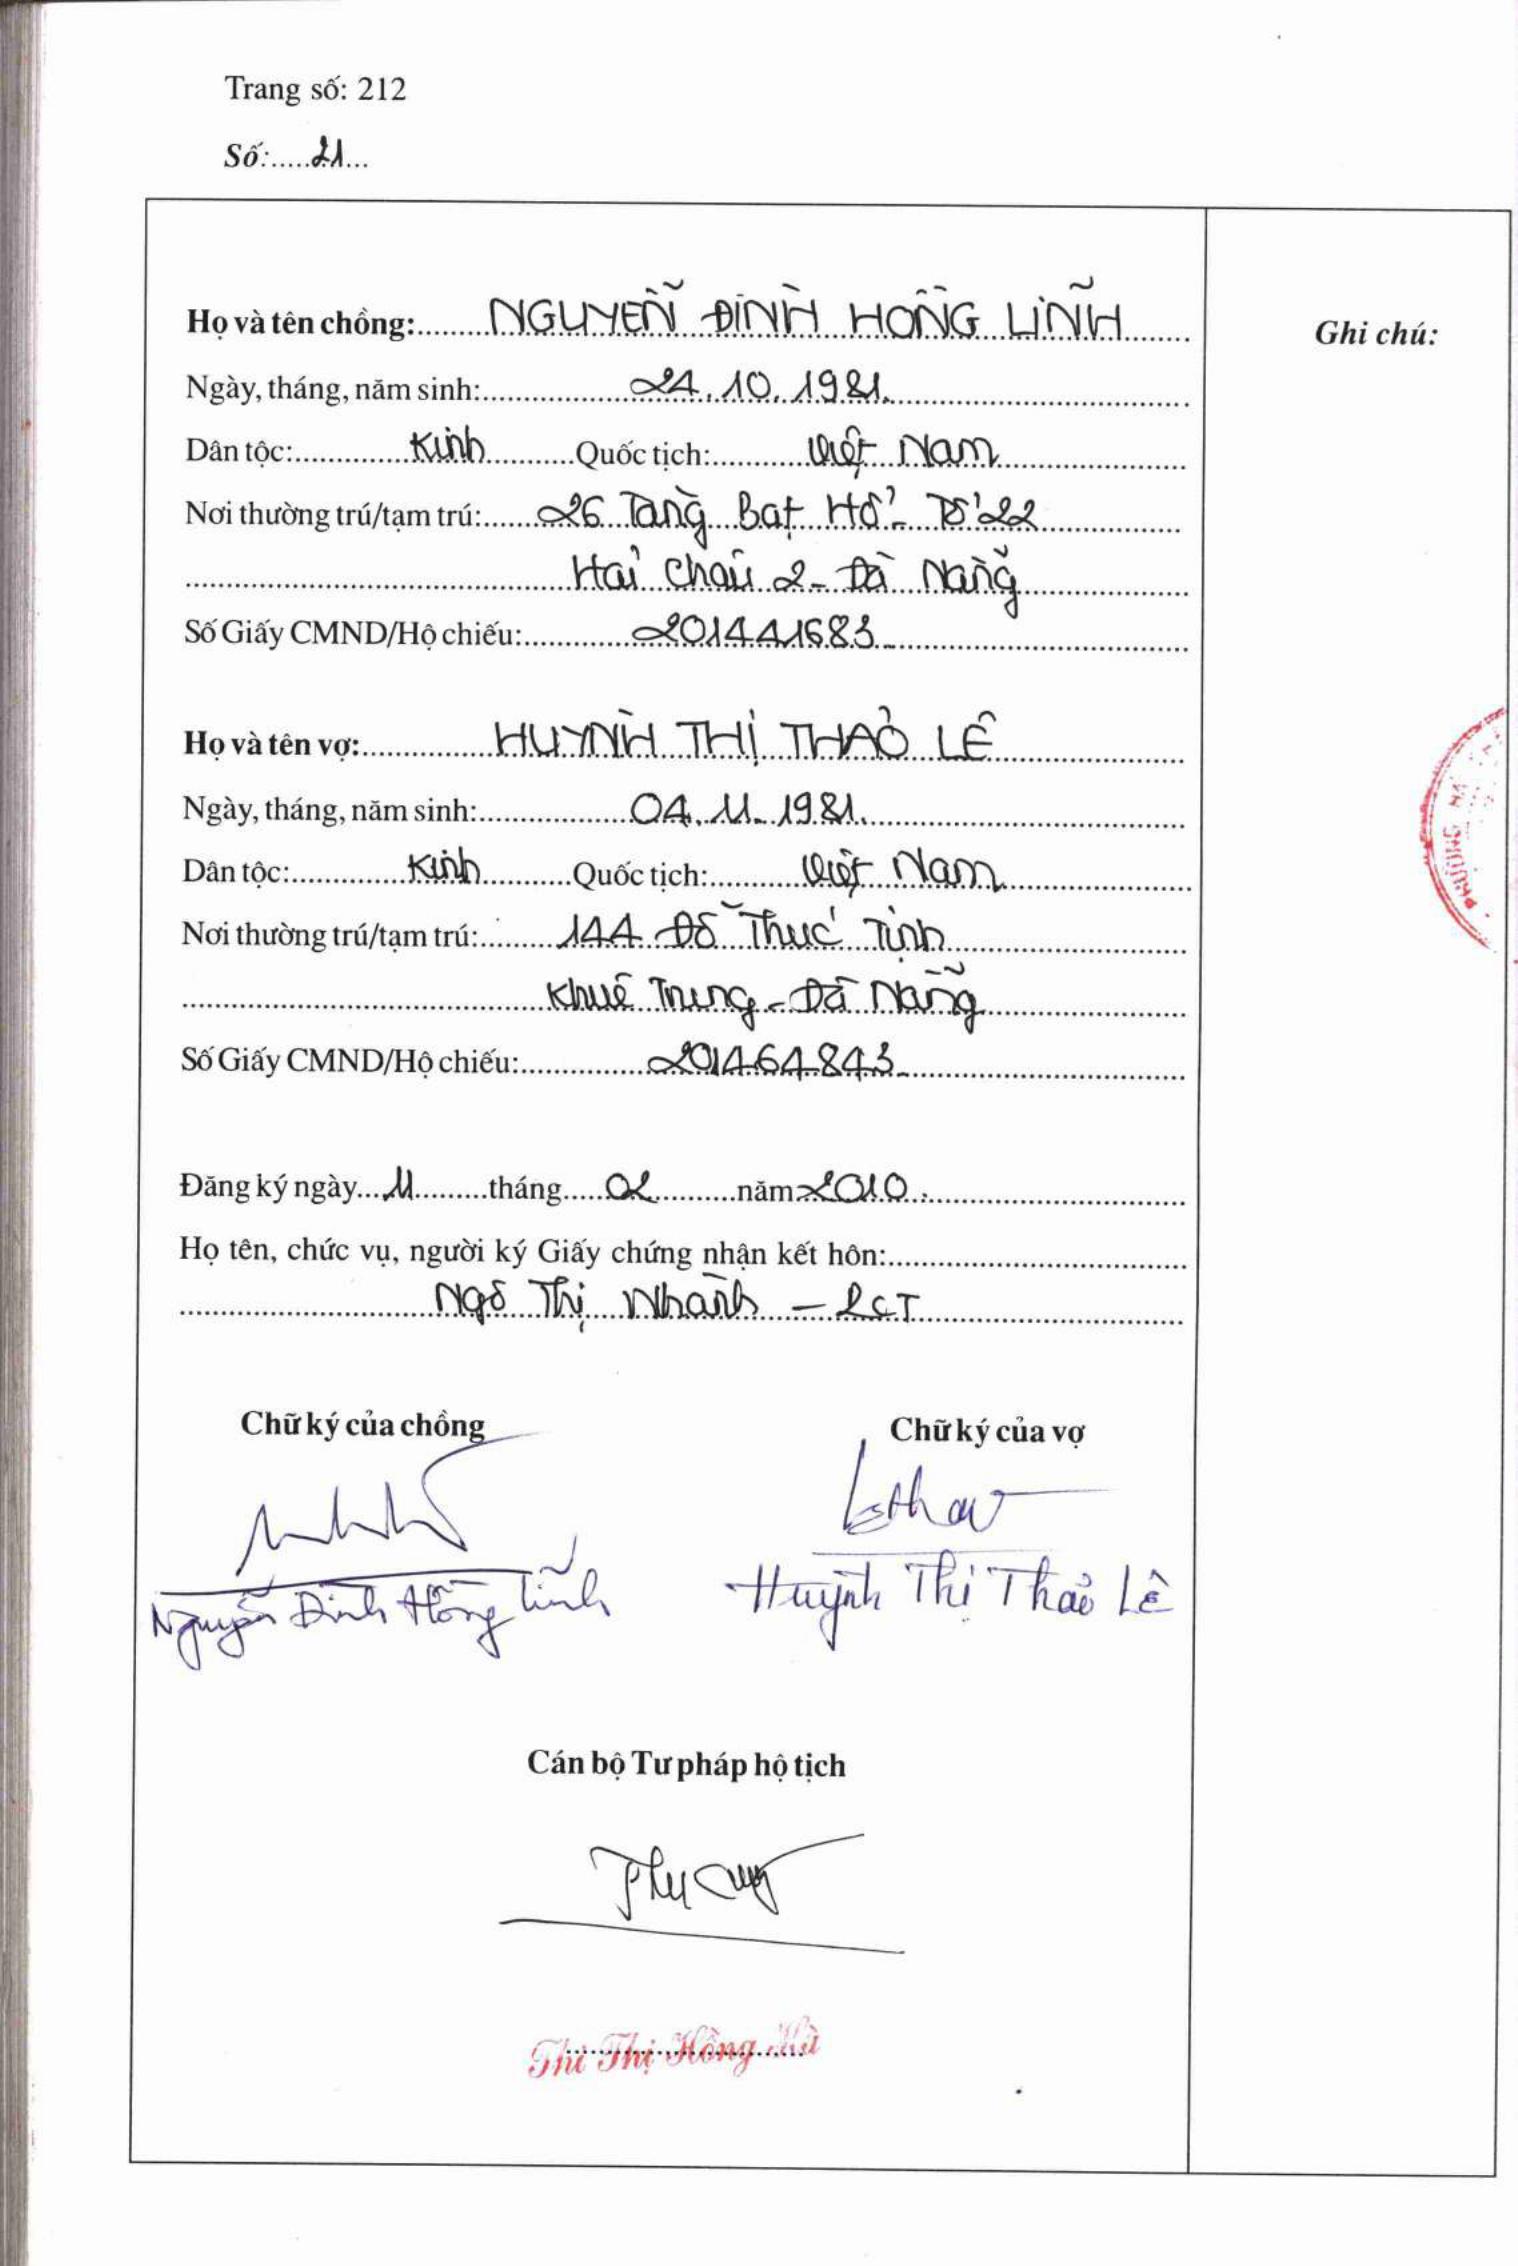 Trang số: 212
Số:.....21...
Họ và tên chồng:.........NGUYỄN ĐÌNH HỒNG LĨNH........
Ghi chú:
Ngày, tháng, năm sinh:....................24.10.1981.....................................
Dân tộc:..............Kinh...........Quốc tịch:............Việt Nam.......................
Nơi thường trú/tạm trú:.......26 Tăng Bạt Hổ - Tổ 22.................
Hải Châu 2 - Đà Nẵng
Số Giấy CMND/Hộ chiếu:..............201441683.....................................
Họ và tên vợ:................HUỲNH THỊ THẢO LÊ.......................
Ngày, tháng, năm sinh:....................04.11.1981.....................................
Dân tộc:..............Kinh...........Quốc tịch:............Việt Nam.......................
Nơi thường trú/tạm trú:..........144 Đỗ Thúc Tịnh.............................
Khuê Trung - Đà Nẵng
Số Giấy CMND/Hộ chiếu:................201464843.................................
PHƯỜNG
Đăng ký ngày....11.........tháng.....02..........năm 2010..............................
Họ tên, chức vụ, người ký Giấy chứng nhận kết hôn:...................................
Ngô Thị Nhành - PCT
Chữ ký của chồng
Chữ ký của vợ
Nguyễn Đình Hồng Lĩnh
Huỳnh Thị Thảo Lê
Cán bộ Tư pháp hộ tịch
Thị Hồng